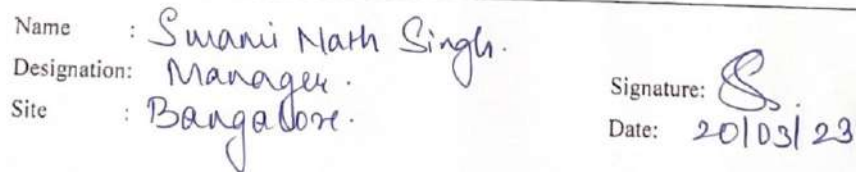 Name : Swami Nath Singh.
Designation: Manager.
Site : Bangalore.
Signature:
Date: 20/03/23